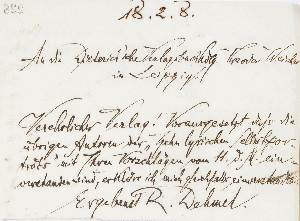 18. 2. 8.
An die Dieterich'sche Verlagsbuchhdlg Theodor Weicher
in Leipzig.
Verehrlicher Verlag! Vorausgesetzt daß die
übrigen Autoren der "zehn lyrischen Selbstpor-
träts" mit Ihren Vorschlägen vom 11. d. M. ein-
verstanden sind, erkläre ich mich gleichfalls einverstanden.
Ergebenst R. Dehmel.